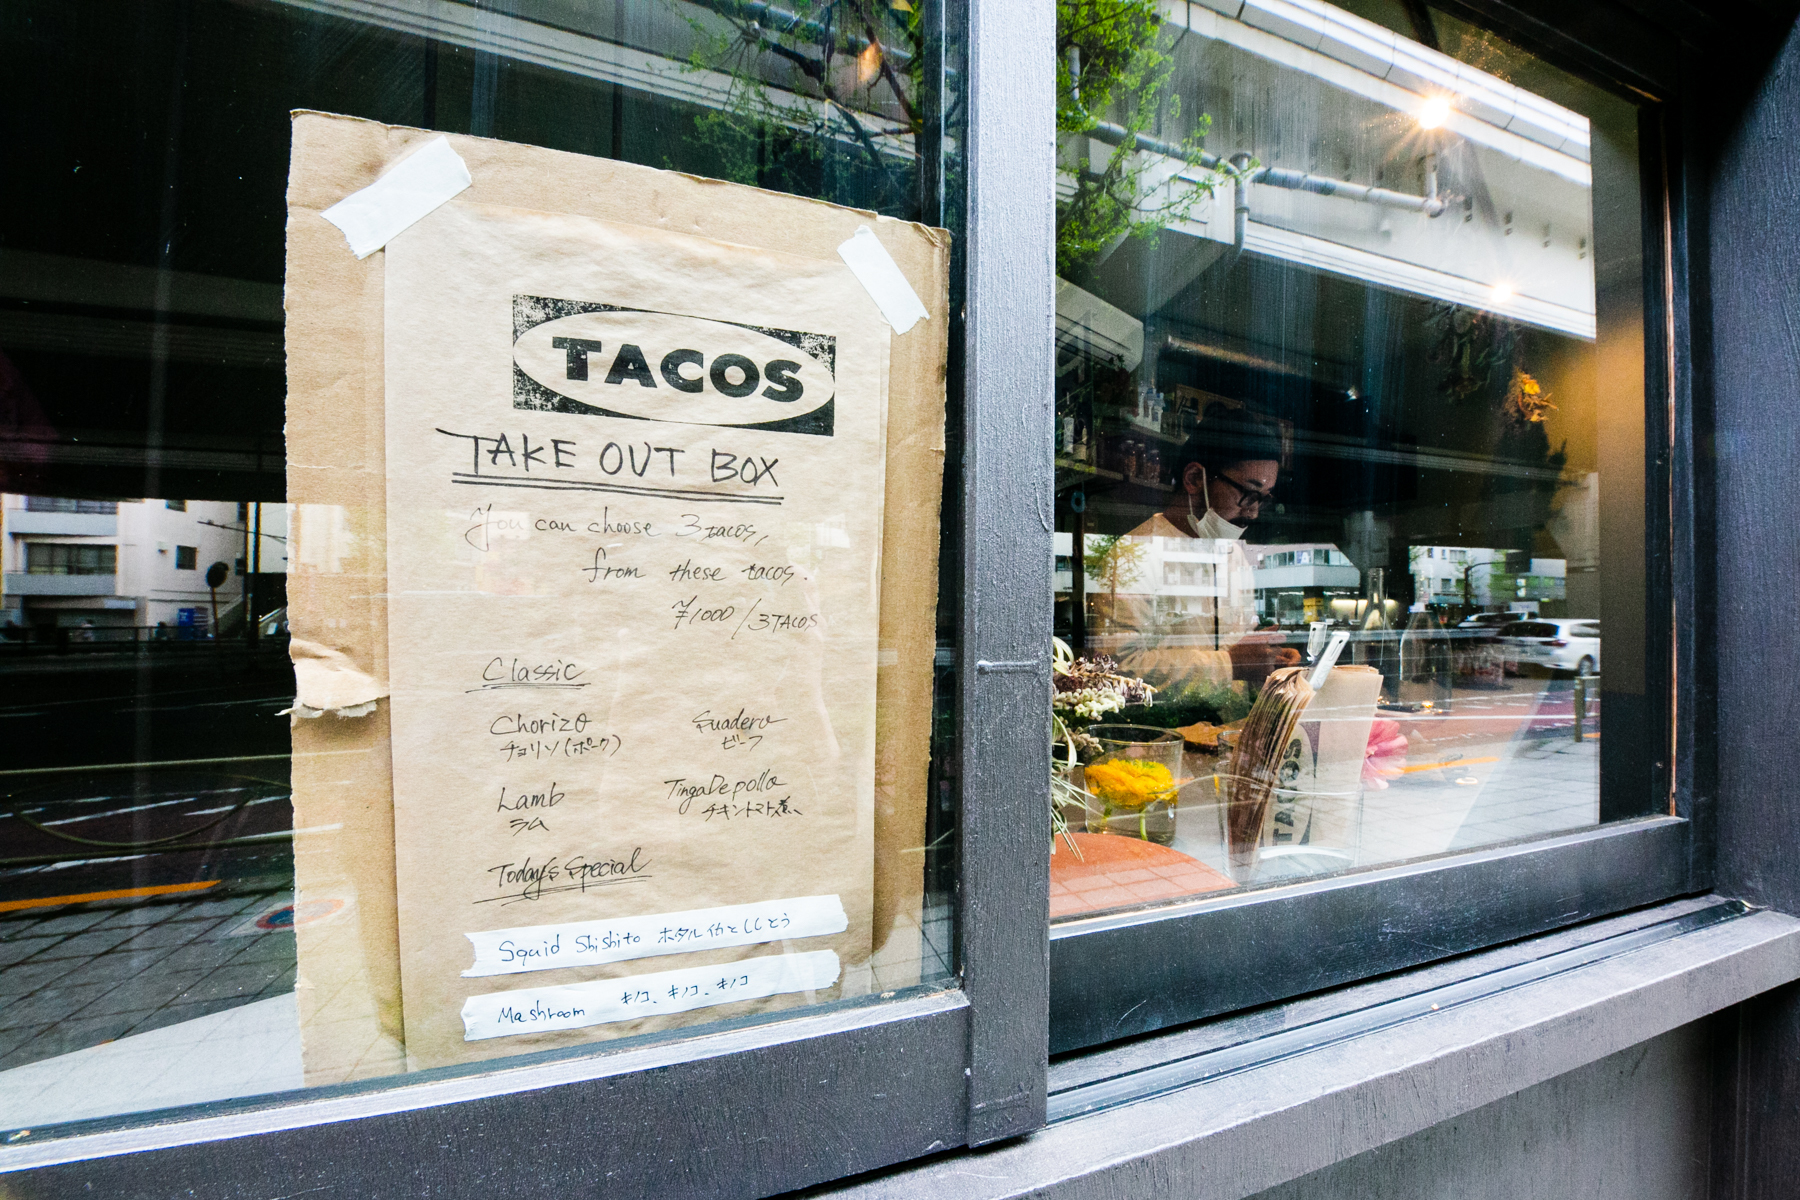 TACOS
TAKE OUT BOX
You can choose 3 tacos,
from these tacos.
¥1000/3TACOS
Classic
Chorizo
チョリソ(ポーク)
Suadero
ビーフ
Lamb
ラム
TingaDepollo
チキントマト煮
Today's Special
Squid Shishito ホタルイカとししとう
Mashroom キノコ、キノコ、キノコ
TACOS